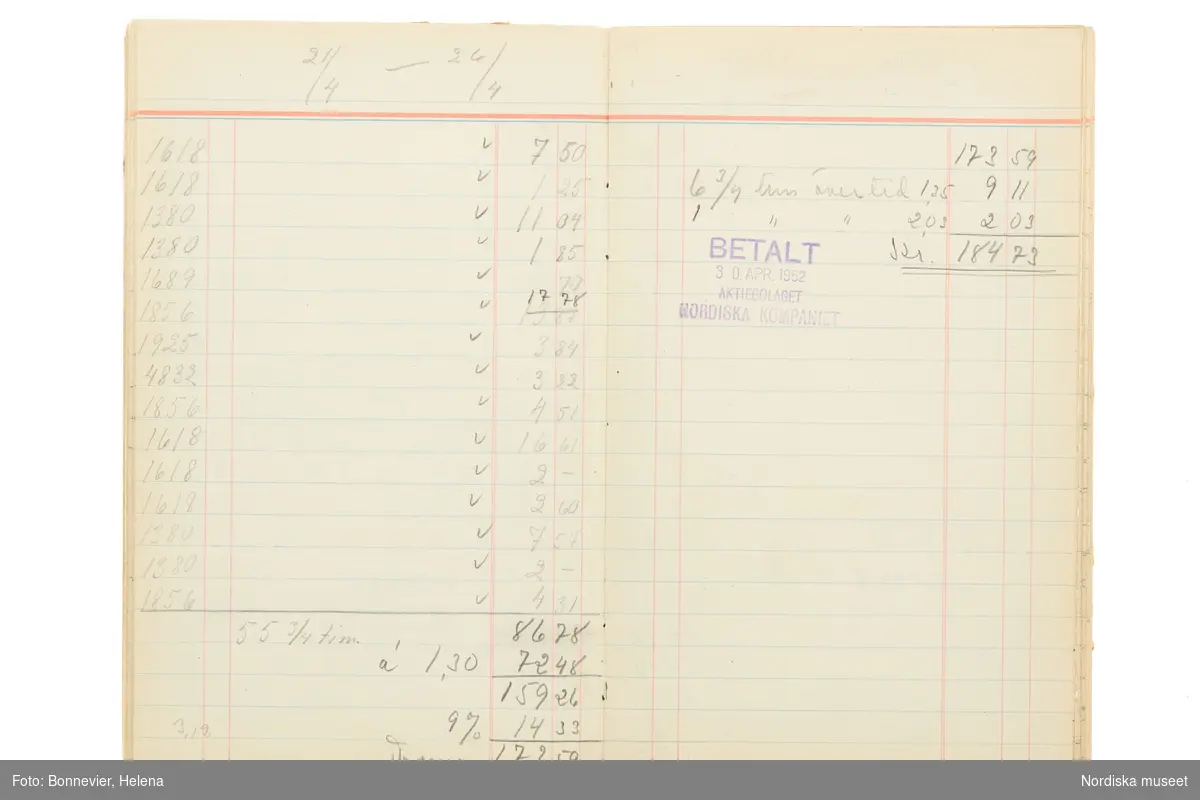 21/4 — 26/4
1618 ✓ 7 50
1618 ✓ 1 25
1380 ✓ 11 04
1380 ✓ 1 85
1689 ✓
1856 ✓ 17 78
1925 ✓ 3 84
4832 ✓ 3 22
1856 ✓ 4 51
1618 ✓ 16 61
1618 ✓ 2 —
1618 ✓ 2 60
1380 ✓ 7 57
1380 ✓ 2 —
1856 ✓ 4 31
55 3/4 tim. 86 78
á 1,30 72 48
159 26
9% 14 33
3,12
173 59
173 59
6 3/4 tim övertid 1,35 9 11
1 " " 2,03 2 03
Kr. 184 73
BETALT
30. APR. 1952
AKTIEBOLAGET
NORDISKA KOMPANIET
Foto: Bonnevier, Helena
Nordiska museet